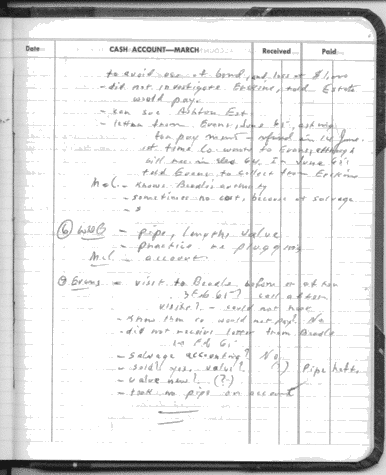 Date CASH ACCOUNT—MARCH Received Paid
to avoid use of bond, and loss of $1,000
- did not investigate Erskine, told Estate
would pay.
- can see Ashton Est
- letter from Evans, June 65, asking
for pay ment - refused in 14 June.
at time he wrote to Evans, although
will men in 64. In June 65
told Evans to collect from Erskine
McL - knows Beadle's authority
- sometimes no cost, because of salvage
- s
⑥ WWB - pipe, lengths value
- practice re plugging
McL - account
Evans - visit to Beadle before or after
3 Feb 65? call after
visits? - could not hear
- knew then he would not pay? No
- did not receive letter from Beadle
Feb 65
- salvage accounting? No
- sold? yes. value? (?) Pipe
- value new? (?)
- took no pipe on account